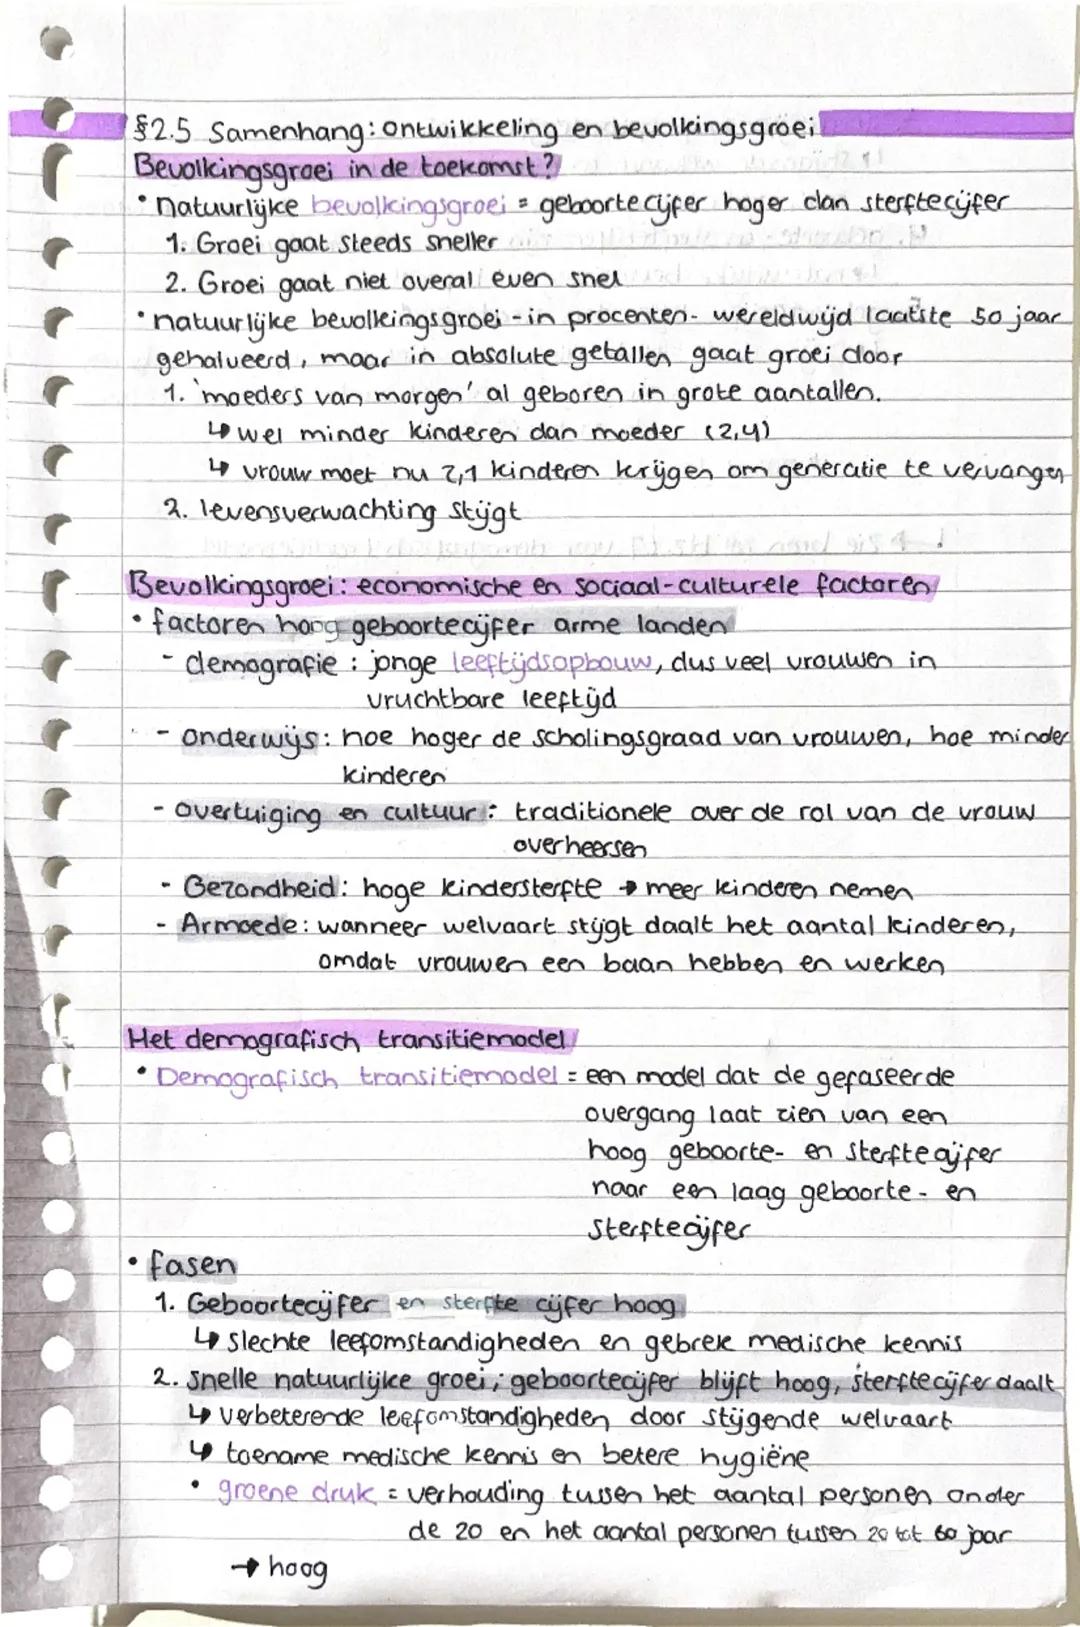 §2.5 Samenhang: ontwikkeling en bevolkingsgroei
Bevolkingsgroei in de toekomst?
• natuurlijke bevolkingsgroei = geboortecijfer hoger dan sterftecijfer
1. Groei gaat steeds sneller
2. Groei gaat niet overal even snel
• natuurlijke bevolkingsgroei - in procenten - wereldwijd laatste 50 jaar
gehalveerd, maar in absolute getallen gaat groei door
1. 'moeders van morgen' al geboren in grote aantallen.
↳ wel minder kinderen dan moeder (2,4)
↳ vrouw moet nu 2,1 kinderen krijgen om generatie te vervangen
2. levensverwachting stijgt
Bevolkingsgroei: economische en sociaal-culturele factoren
• factoren hoog geboortecijfer arme landen
- demografie: jonge leeftijdsopbouw, dus veel vrouwen in
vruchtbare leeftijd
- onderwijs: hoe hoger de scholingsgraad van vrouwen, hoe minder
kinderen
- overtuiging en cultuur: traditionele over de rol van de vrouw
overheersen
- Gezondheid: hoge kindersterfte → meer kinderen nemen
- Armoede: wanneer welvaart stijgt daalt het aantal kinderen,
omdat vrouwen een baan hebben en werken
Het demografisch transitiemodel
• Demografisch transitiemodel = een model dat de gefaseerde
overgang laat zien van een
hoog geboorte- en sterftecijfer
naar een laag geboorte- en
sterftecijfer
• fasen
1. Geboortecijfer en sterfte cijfer hoog
↳ slechte leefomstandigheden en gebrek medische kennis
2. snelle natuurlijke groei; geboortecijfer blijft hoog, sterftecijfer daalt
↳ verbeterende leefomstandigheden door stijgende welvaart
↳ toename medische kennis en betere hygiëne
• groene druk = verhouding tussen het aantal personen onder
de 20 en het aantal personen tussen 20 tot 60 jaar
→ hoog